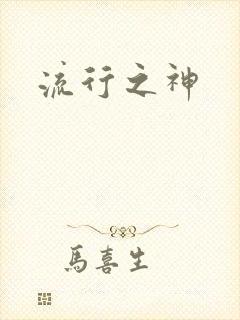 流行之神
馬喜生